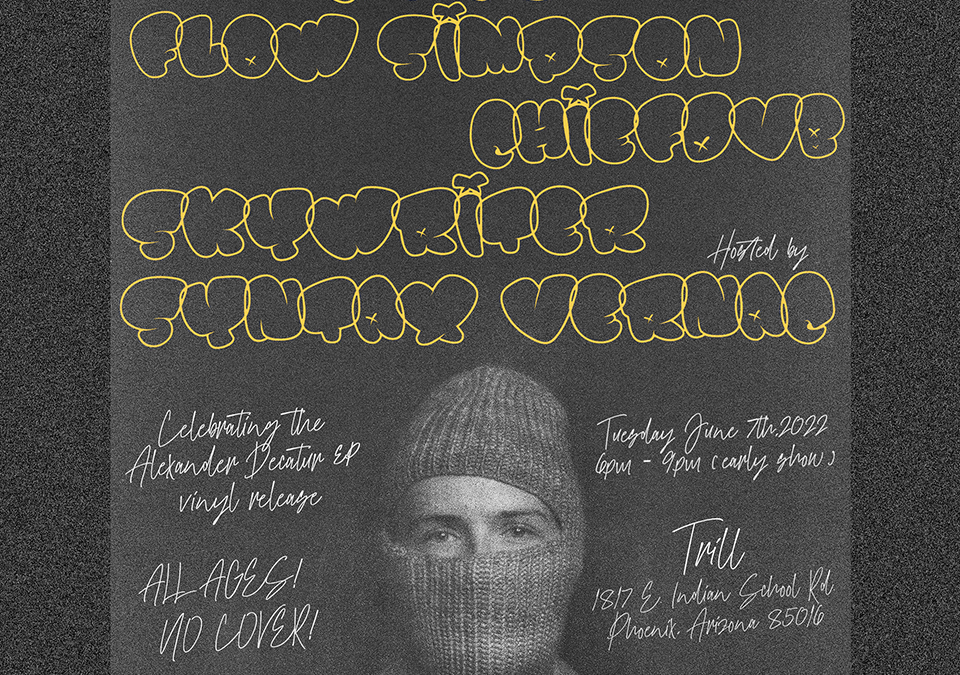 FLOW SIMPSON
CHIEFDUB
SKYWRITER
Hosted by
SYNTAX VERNAC
Celebrating the
Alexander Decatur EP
vinyl release
ALL AGES!
NO COVER!
Tuesday June 7th.2022
6pm - 9pm (early show)
Trill
1817 E. Indian School Rd
Phoenix. Arizona 85016